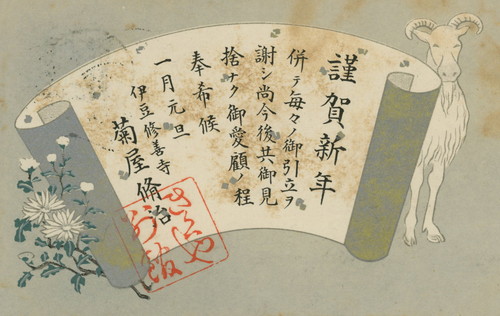 謹賀新年
併テ毎々ノ御引立ヲ
謝シ尚今後共御見
捨ナク御愛顧ノ程
奉希候
一月元旦
伊豆修善寺
菊屋脩治